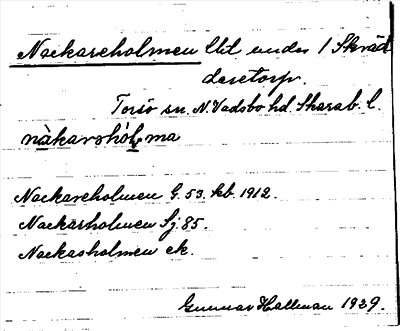 Nackareholmen lht under 1 Skräd
daretorp.
Torsö sn. N. Vadsbo hd. Skarab. l.
nàkarshól ma
Nackareholmen G. 53. kb. 1912.
Nackarholmen Sj. 85.
Nackasholmen ek.
Gunnar Hallman 1929.